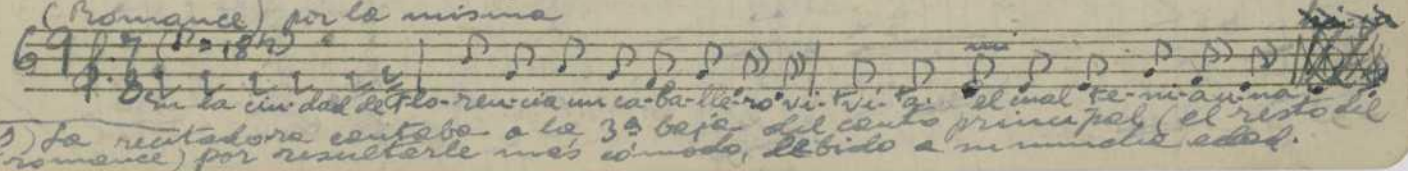 (Romance) por la misma
69 7 8 (♪ = 184)
En la ciu-dad de Flo-ren-cia un ca-ba-lle-ro vi-vi-a el cual te-ni-a u-na
mi
) La recitadora cantaba a la 3ª baja del canto principal (el resto del
romance) por resultarle más cómodo, debido a su mucha edad.